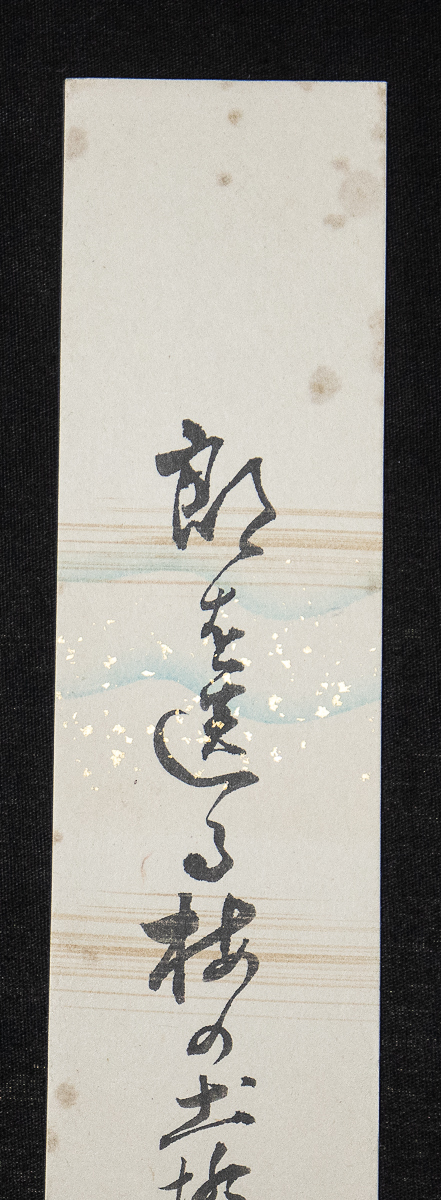 郎を送る梅の土